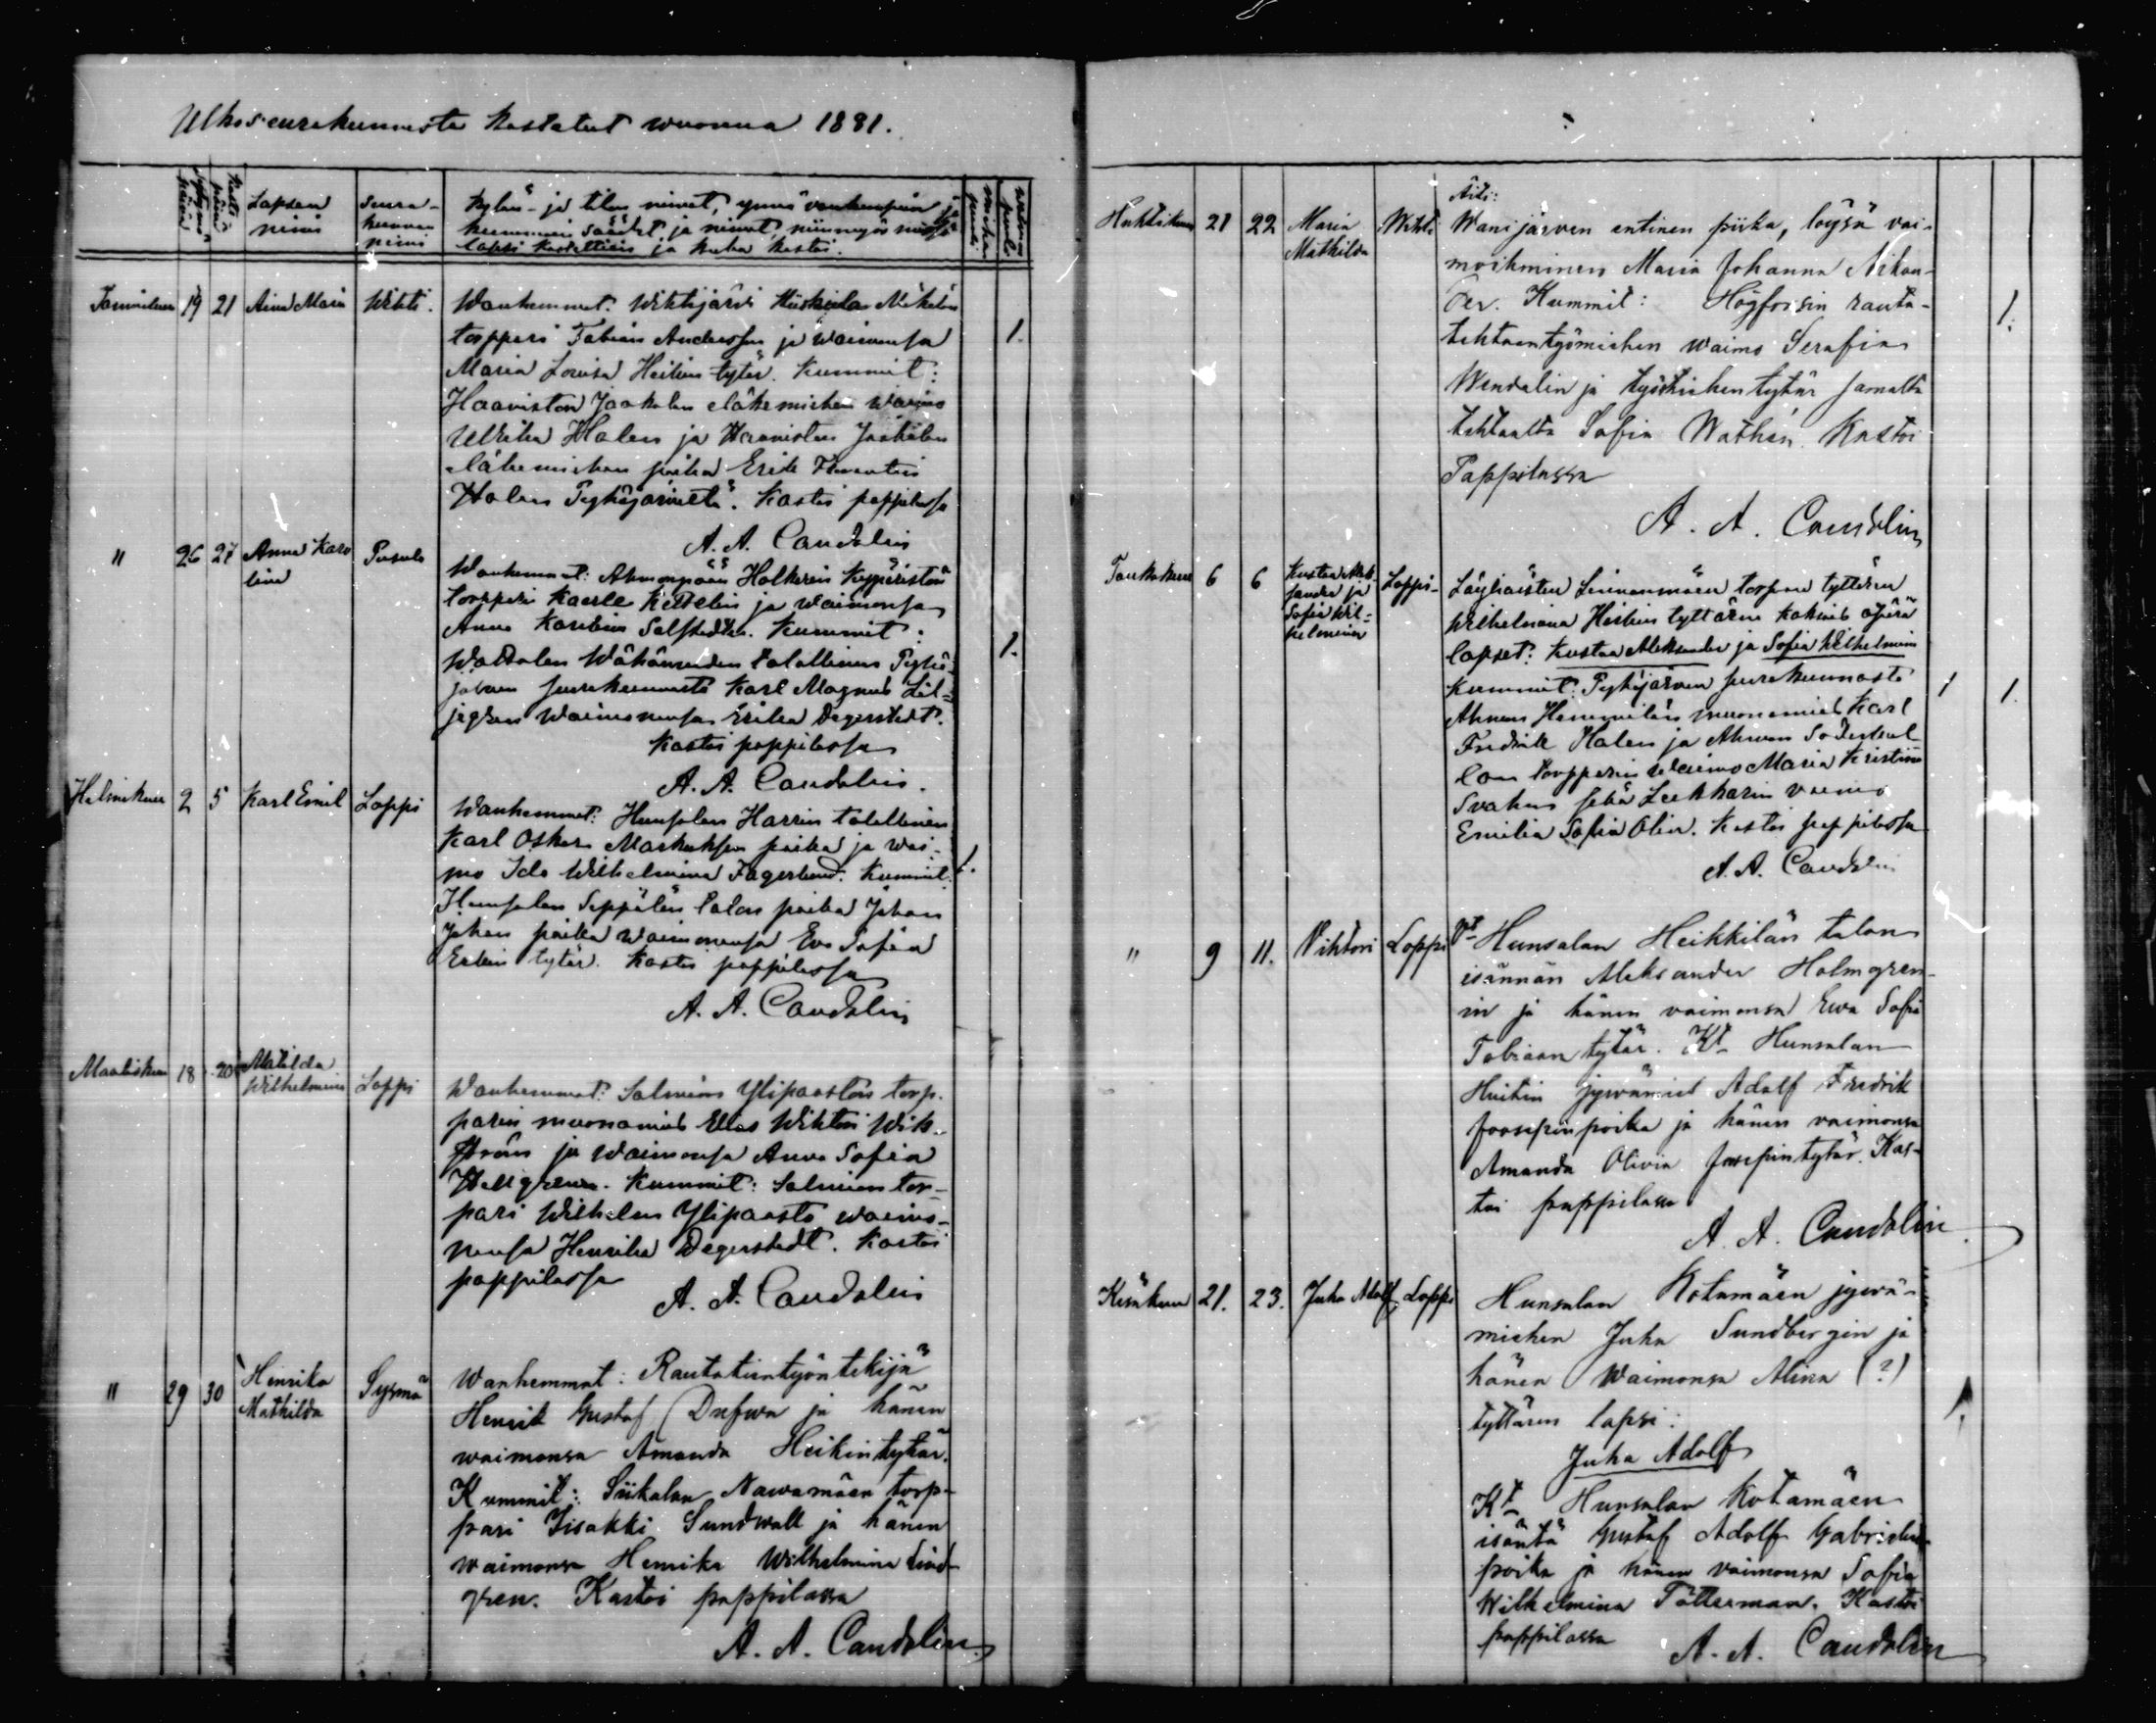 Ulkoseurakunnista kastetut wuonna 1881.
Syntymä päivä
Kaste päivä
Lapsen nimi
Seura-kunnan nimi
Kylän- ja tilan nimet, ynnä vanhempain ja
kummien säädyt ja nimet, niinmyös missä
lapsi kastettiin ja kuka kastoi.
Tammikuu 19 21 Aina Maria Wihti.
Wanhemmat: Wihtijärvi Mäkelän
torppari Fabian Andersson ja waimonsa
Maria Lovisa Heikin tytär. Kummit:
Haaviston Jaakolan eläkemiehen waimo
Ulrika Halen ja Haaviston Jaakolan
eläkemiehen poika Erik
Halen Pyhäjärveltä. Kastoi pappilassa
A. A. Candolin
1.
" 26 27 Anna Karolina Pusula
Wanhemmat: Ahmonpään Holkerin
torppari Kaarle ja waimonsa
Anna Karolina. Kummit:
Wähämenden talollinen Pyhä-
järven seurakunnasta Karl Magnus Lil-
waimonensa Erika Degerstedt.
Kastoi pappilassa
A. A. Candolin.
1.
Helmikuu 2 5 Karl Emil Loppi
Wanhemmat: Hunsalan Harrin talollinen
Karl Oskar Markuksen poika ja wai-
mo Ida Wilhelmina Fagerlund. Kummit:
Hunsalan Seppälän talon poika Johan
Johan poika waimonensa Eva Sofia
Erkin tytär. Kastoi pappilassa
A. A. Candolin
1.
Maaliskuu 18 20 Matilda Wilhelmina Loppi
Wanhemmat: Salmion Ylipaaston torp-
parin muonamies Elias Wiktor Wik-
ström ja waimonsa Anna Sofia
Hellgren. Kummit: Salmion tor-
pari Wilhelm Ylipaasto waimo-
nensa Henrika Degerstedt. Kastoi
pappilassa
A. A. Candolin
" 29 30 Henrika Mathilda Sysmä
Wanhemmat: Rautatientyöntekijä
Henrik Gustaf Drefwa ja hänen
waimonsa Amanda Heikintytär.
Kummit: Siikalan Nawamäen torp-
pari Iisakki Sundwall ja hänen
waimonsa Henrika Wilhelmina Lind-
gren. Kastoi pappilassa
A. A. Candolin
Huhtikuu 21 22 Maria Mathilda Wihti
Äiti:
Wanijärven entinen piika, löysä vai-
moihminen Maria Johanna Nikan-
der. Kummit: Högforsin rauta-
tehtaantyömiehen waimo Serafia
Wendalin ja työmiehentytär samalta
tehtaalta Sofia Wathén. Kastoi
Pappilassa
A. A. Candolin
1.
Toukokuu 6 6 Kustaa Aleksander ja Sofia Wilhelmina Loppi
Läyliäisten Linnanmäen torpan tyttären
Wilhelmina Heikin tyttären kaksois äpärä
lapset: Kustaa Aleksander ja Sofia Wilhelmina
Kummit: Pyhäjärven seurakunnasta
Ahmon Hemmilän muonamies Karl
Fredrik Halen ja Ahmon
torpparin waimo Maria Kristina
Svahn sekä vaimo
Emilia Sofia Olin. Kastoi pappilassa
A. A. Candolin
1 1.
" 9 11. Vihtori Loppi
Vt Hunsalan Heikkilän talon
isännän Aleksander Holmgren-
in ja hänen vaimonsa Ewa Sofia
Tobiaan tytär. Kt Hunsalan
Huitin jywämies Adolf Fredrik
Joosepinpoika ja hänen vaimonsa
Amanda Olivia Josepintytär. Kas-
toi pappilassa
A. A. Candolin
Kesäkuu 21. 23. Juho Adolf Loppi
Hunsalan Kotamäen jywä-
miehen Juha Sundbergin ja
hänen Waimonsa Alina (?)
tyttären lapsi:
Juha Adolf
Kt Hunsalan Kotamäen
isäntä Gustaf Adolf Gabrielin-
poika ja hänen vaimonsa Sofia
Wilhelmina Tötterman. Kastoi
pappilassa
A. A. Candolin
1.